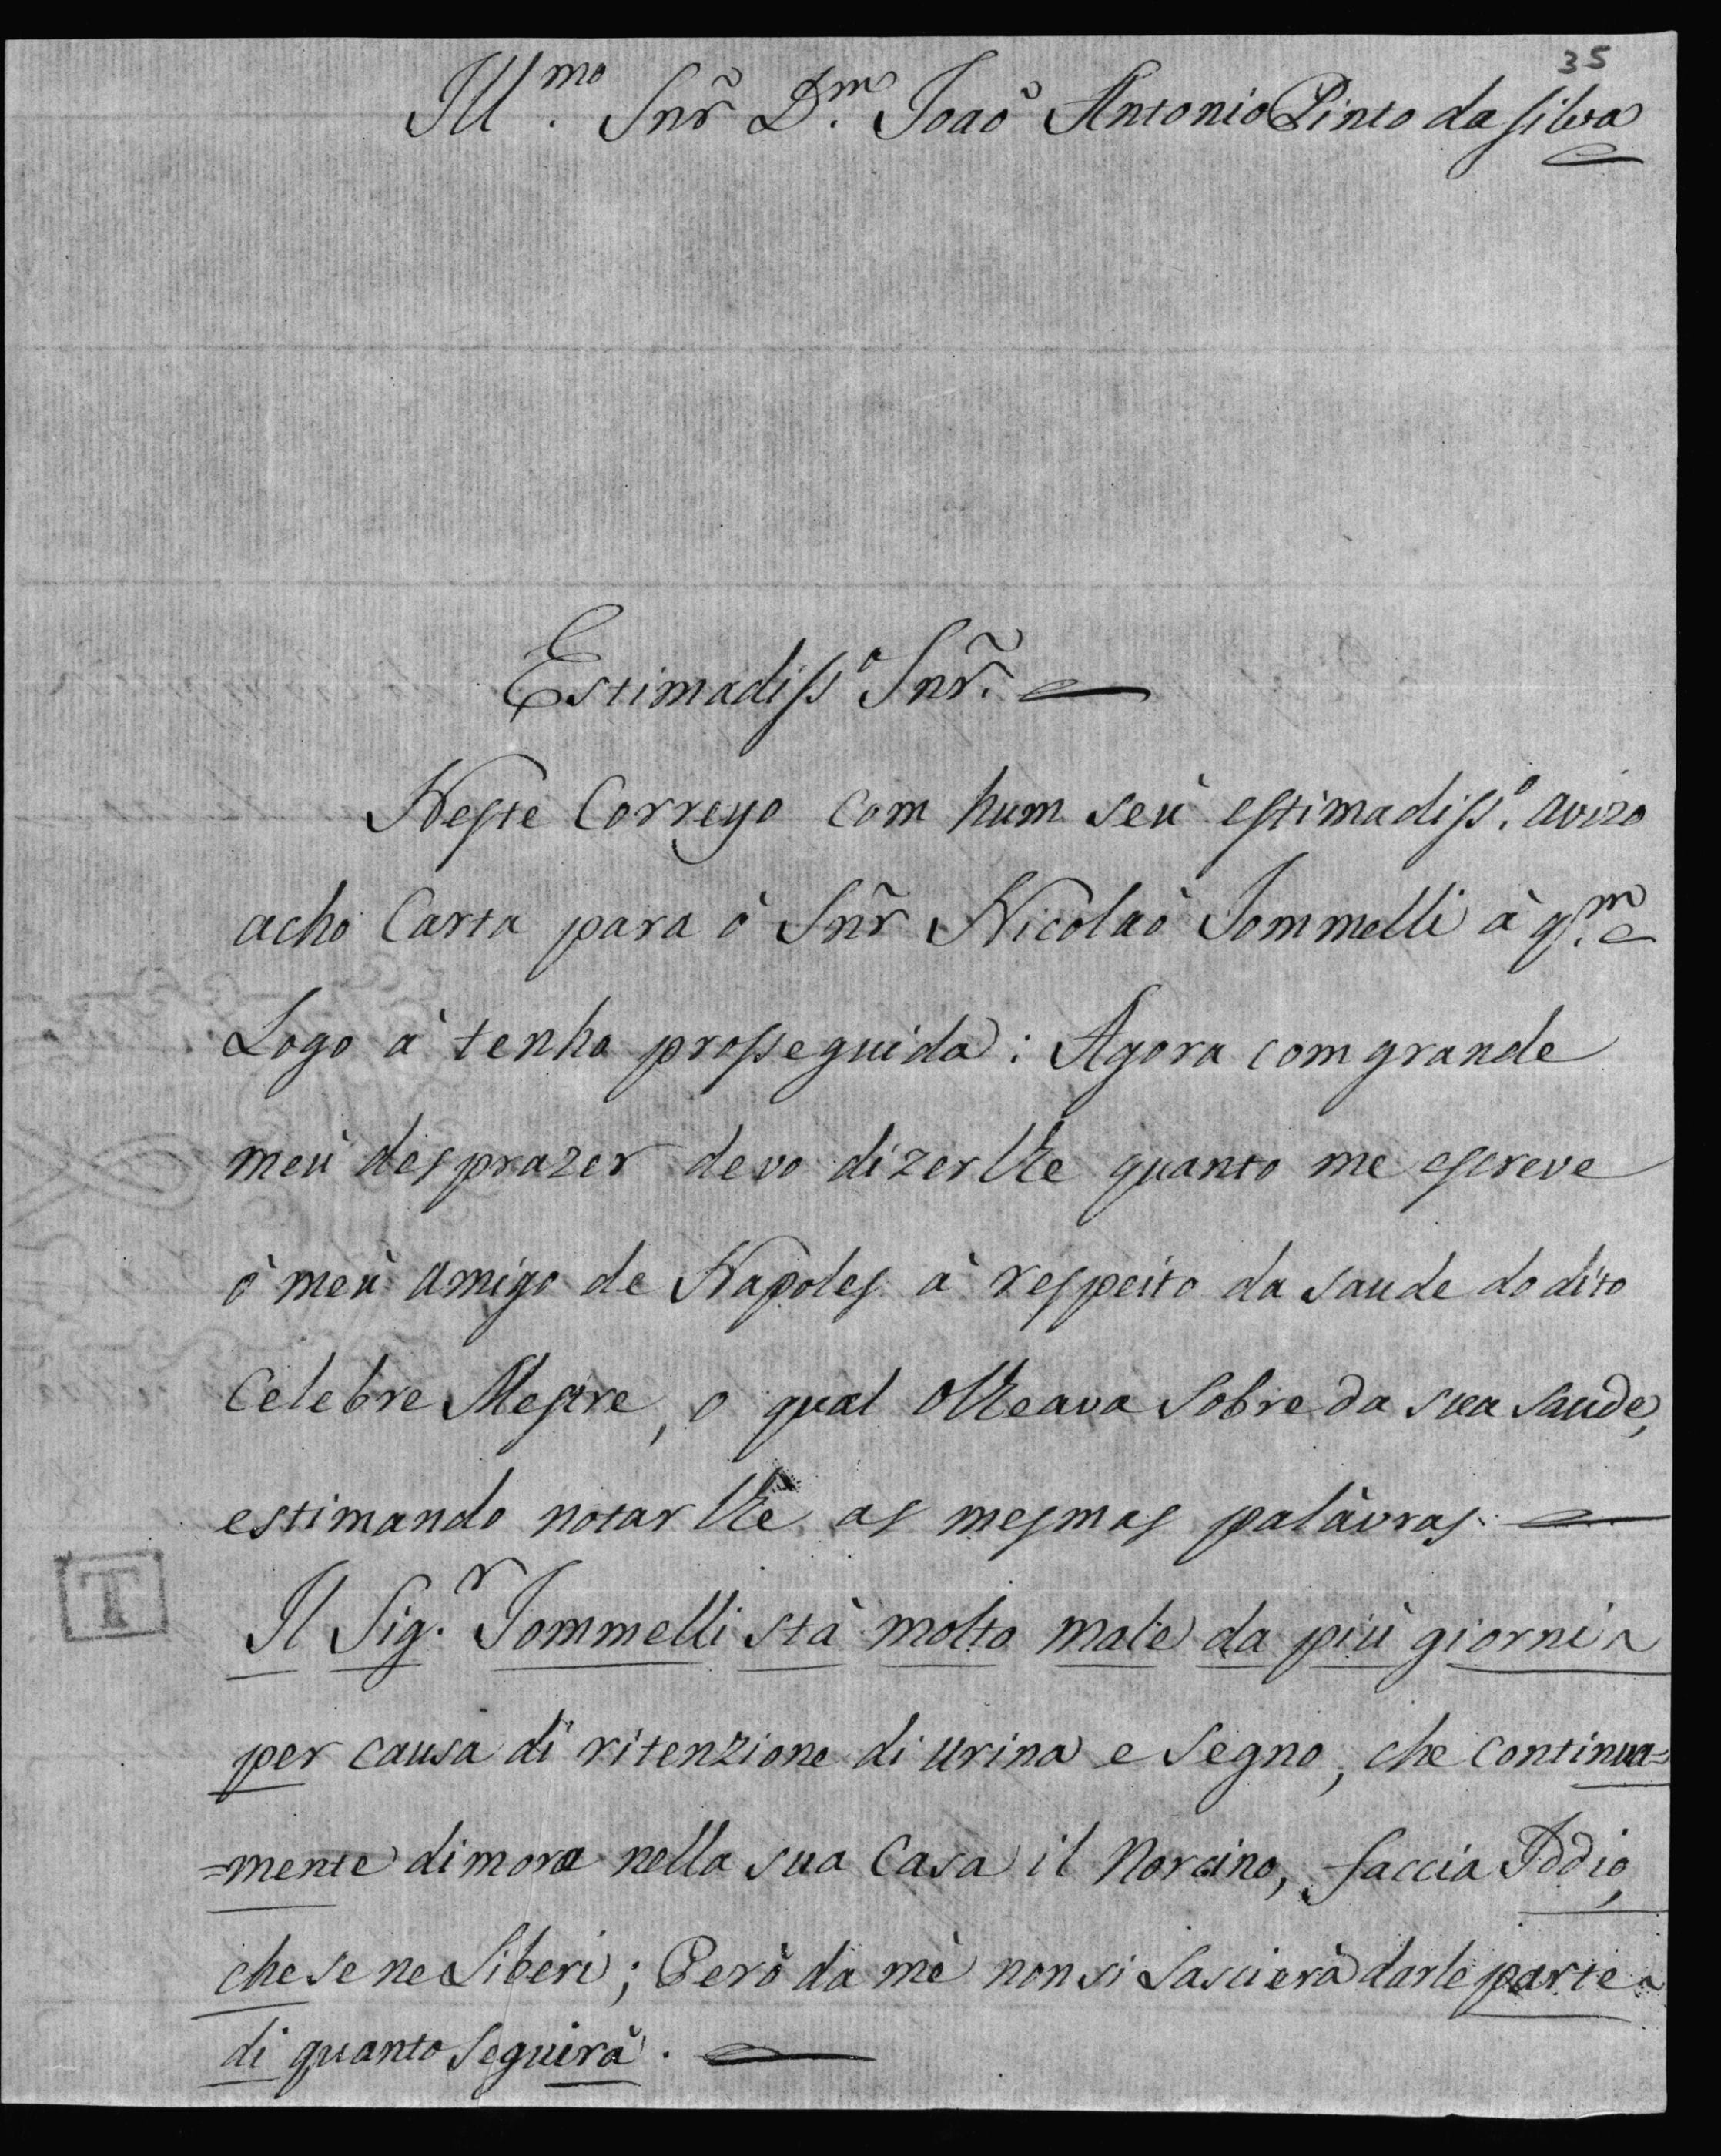 35
Ill.mo Snr̃ D.m Joaõ Antonio Pinto da silva
Estimadiss.º Snr̃.
Neste Correyo com hum seù estimadiss.º avizo
acho Carta para ò Snr̃ Nicolaò Jommelli à q.m
Logo à tenho prosseguida : Agora com grande
meù desprazer devo dizerlhe quanto me escreve
ò meù amigo de Napoles à respeito da saude do dito
Celebre Mestre, o qual olheava sobre da sua saude,
estimando notarlhè as mesmas palàvras.
Il Sig.r Jommelli stà molto male da più giorni
per causa di ritenzione di urina e segno, che continua=
=mente dimora nella sua Casa il Norcino, faccia Iddio,
che se ne Liberi; Però da mè non si Lascierà darle parte
di quanto seguirà.
T